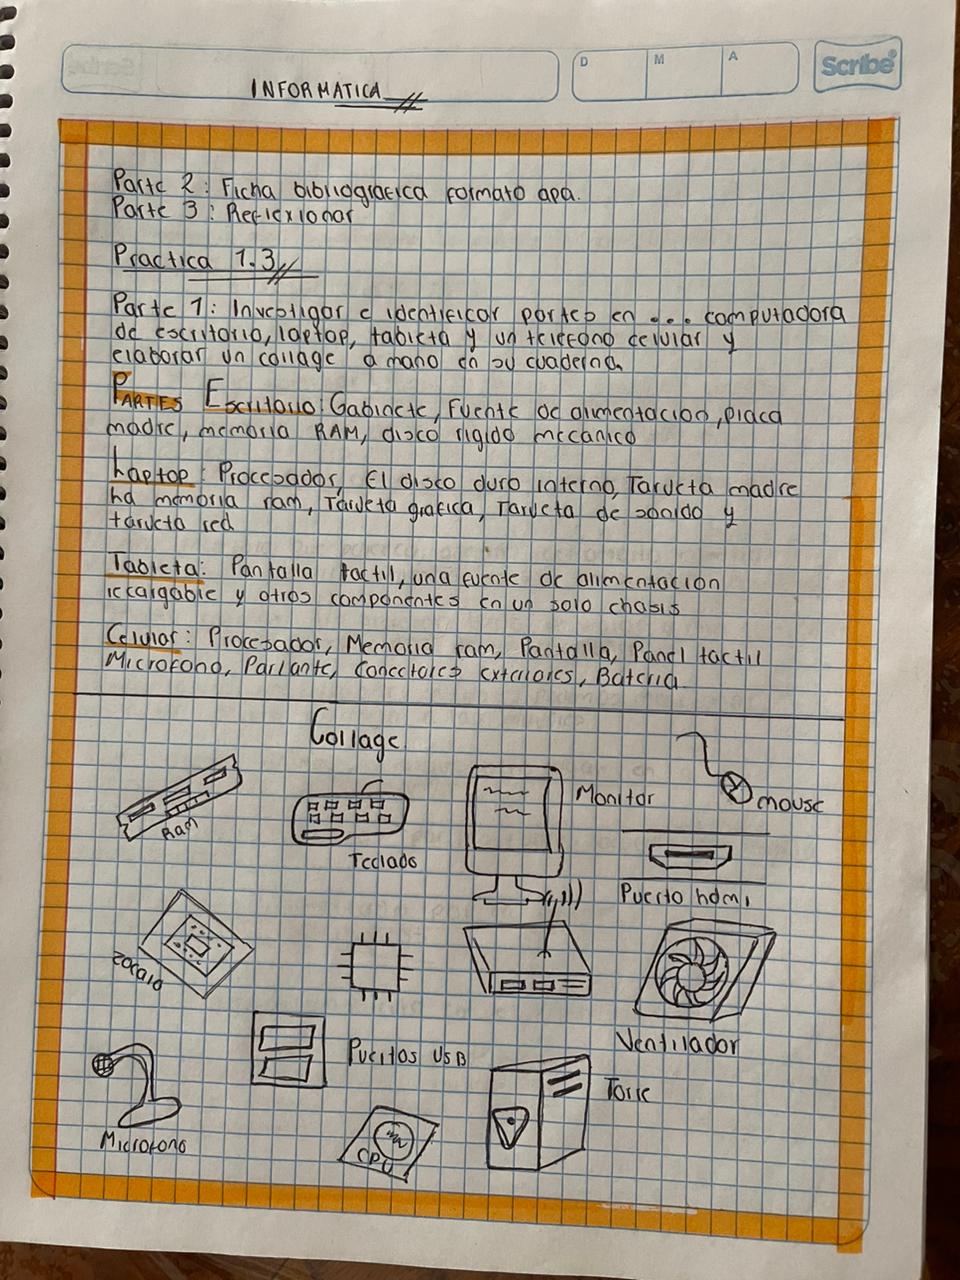 INFORMATICA
D M A
Scribe
Parte 2: Ficha bibliografica formato apa.
Parte 3: Reflexionar
Practica 1.3
Parte 1: Investigar e identificar partes en ... computadora
de escritorio, laptop, tableta y un telefono celular y
elaborar un collage a mano en su cuaderno.
PARTES Escritorio: Gabinete, Fuente de alimentacion, placa
madre, memoria RAM, disco rigido mecanico
Laptop: Procesador, El disco duro interno, Tarjeta madre
la memoria ram, Tarjeta grafica, Tarjeta de sonido y
tarjeta red.
Tableta: Pantalla tactil, una fuente de alimentacion
recargable y otros componentes en un solo chasis
Celular: Procesador, Memoria ram, Pantalla, Panel tactil
Microfono, Parlante, Conectores exteriores, Bateria
Collage
Ram
Teclado
Monitor
mouse
Puerto hdmi
zocalo
Ventilador
Puertos USB
Torre
Microfono
CPU